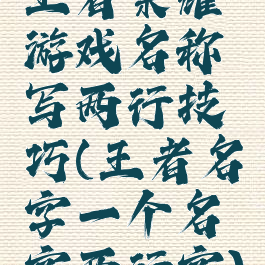 王者荣耀
游戏名称
写两行技
巧(王者名
字一个名
字两行字)